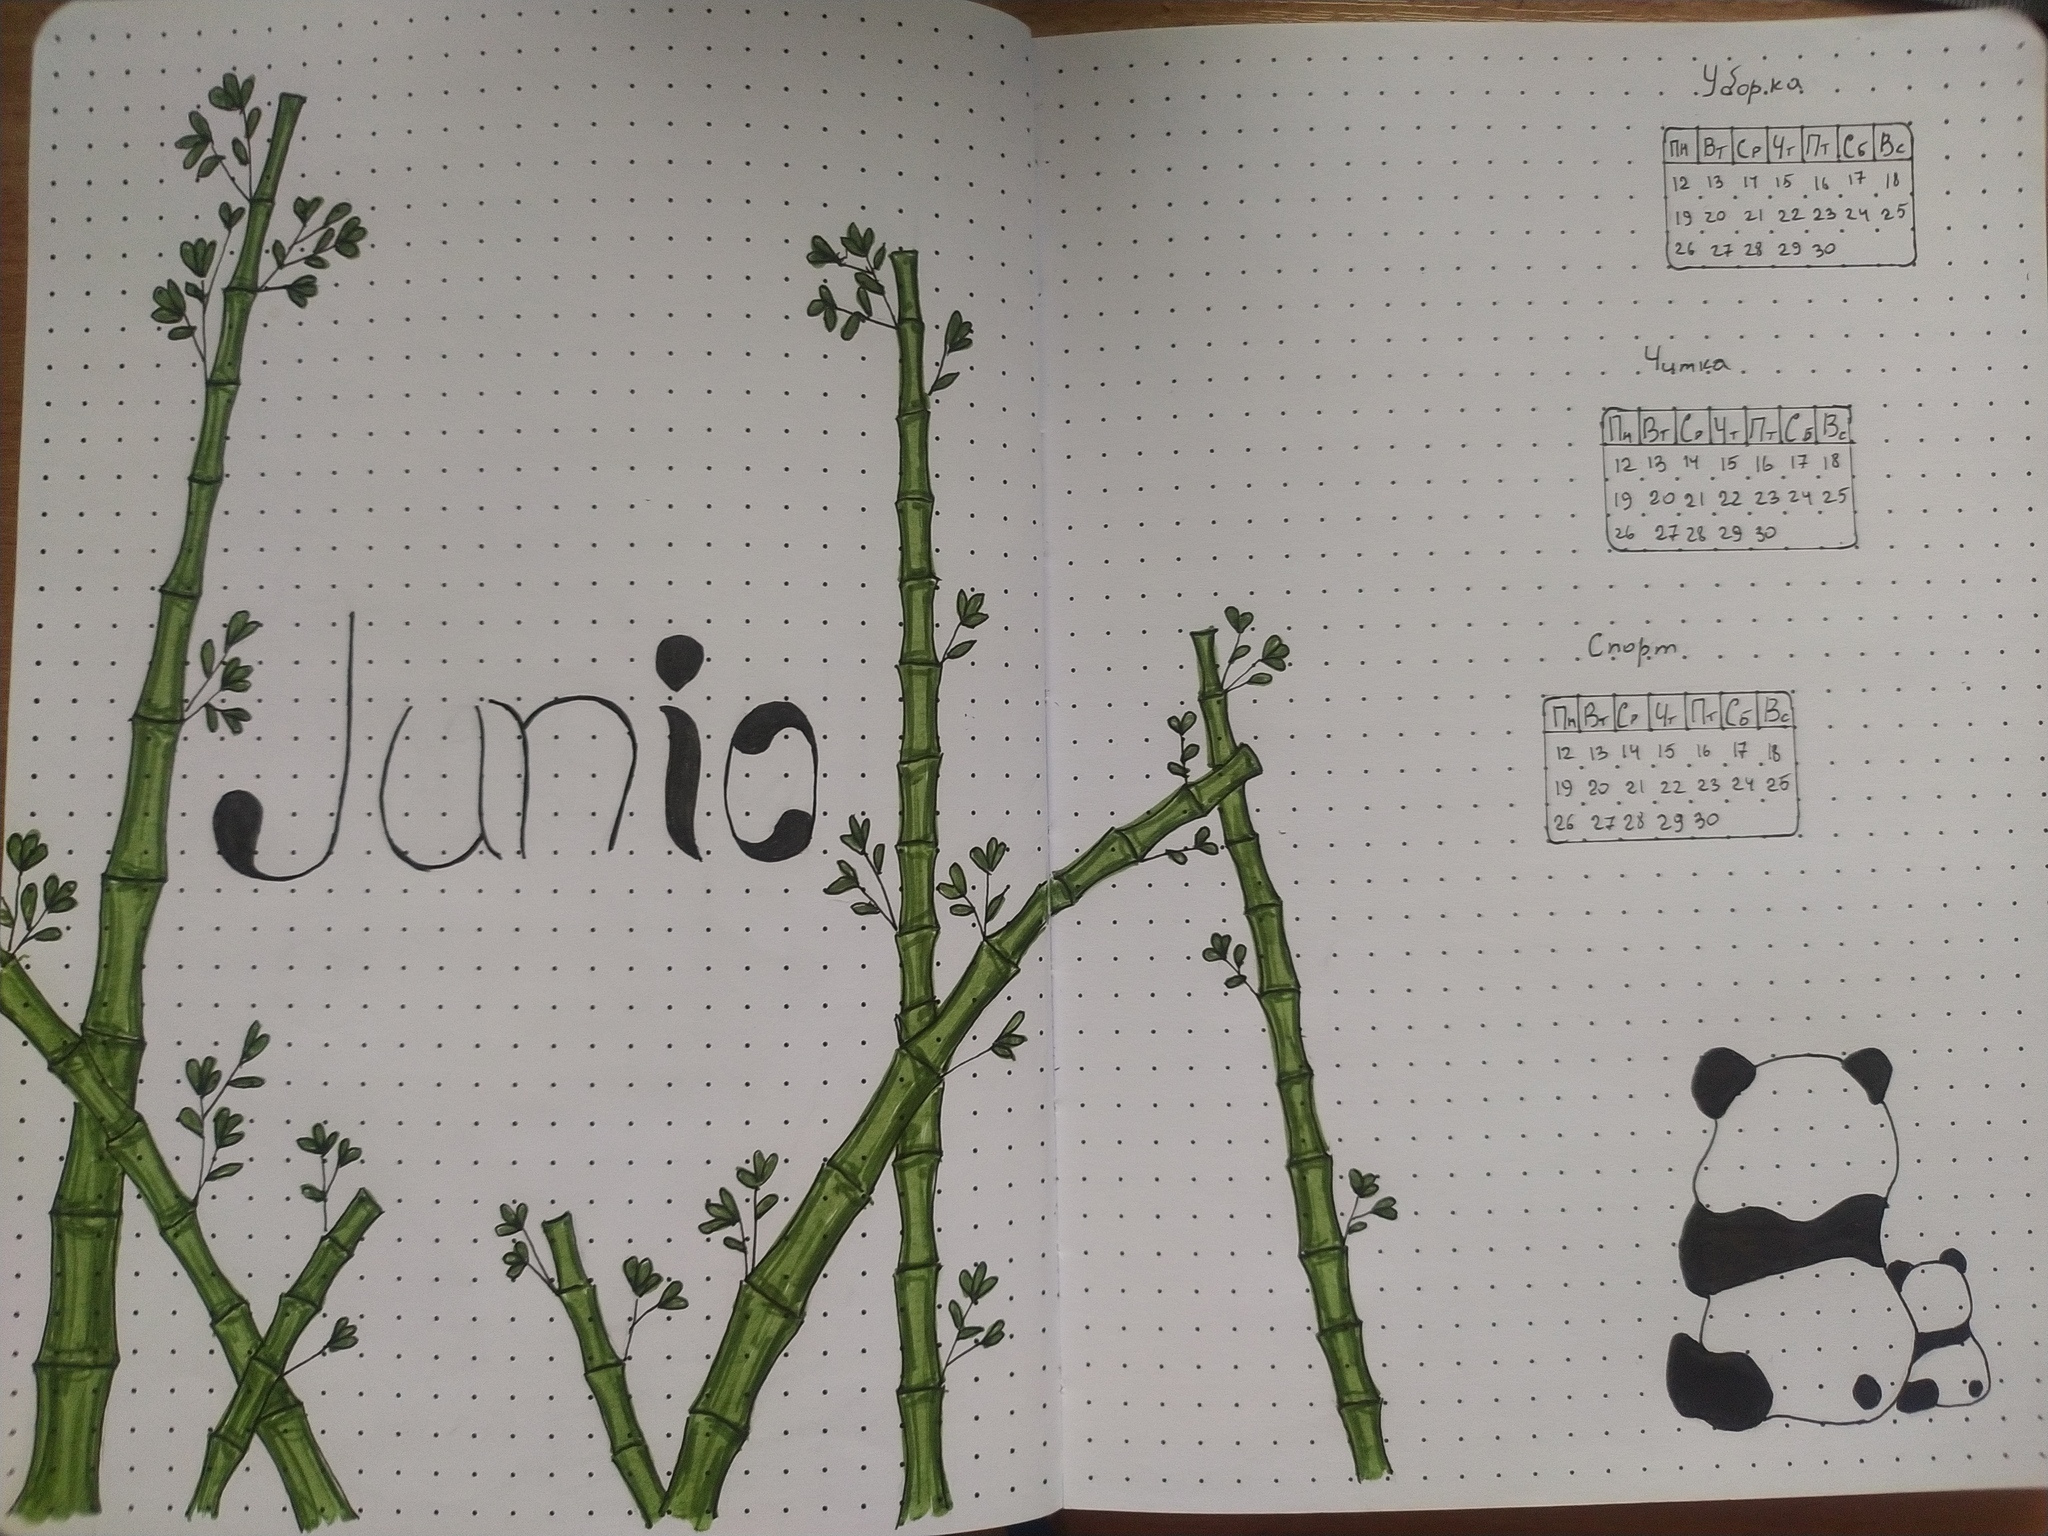 Junio
Уборка
Пн Вт Ср Чт Пт Сб Вс
12 13 14 15 16 17 18
19 20 21 22 23 24 25
26 27 28 29 30
Читка
Пн Вт Ср Чт Пт Сб Вс
12 13 14 15 16 17 18
19 20 21 22 23 24 25
26 27 28 29 30
Спорт
Пн Вт Ср Чт Пт Сб Вс
12 13 14 15 16 17 18
19 20 21 22 23 24 25
26 27 28 29 30